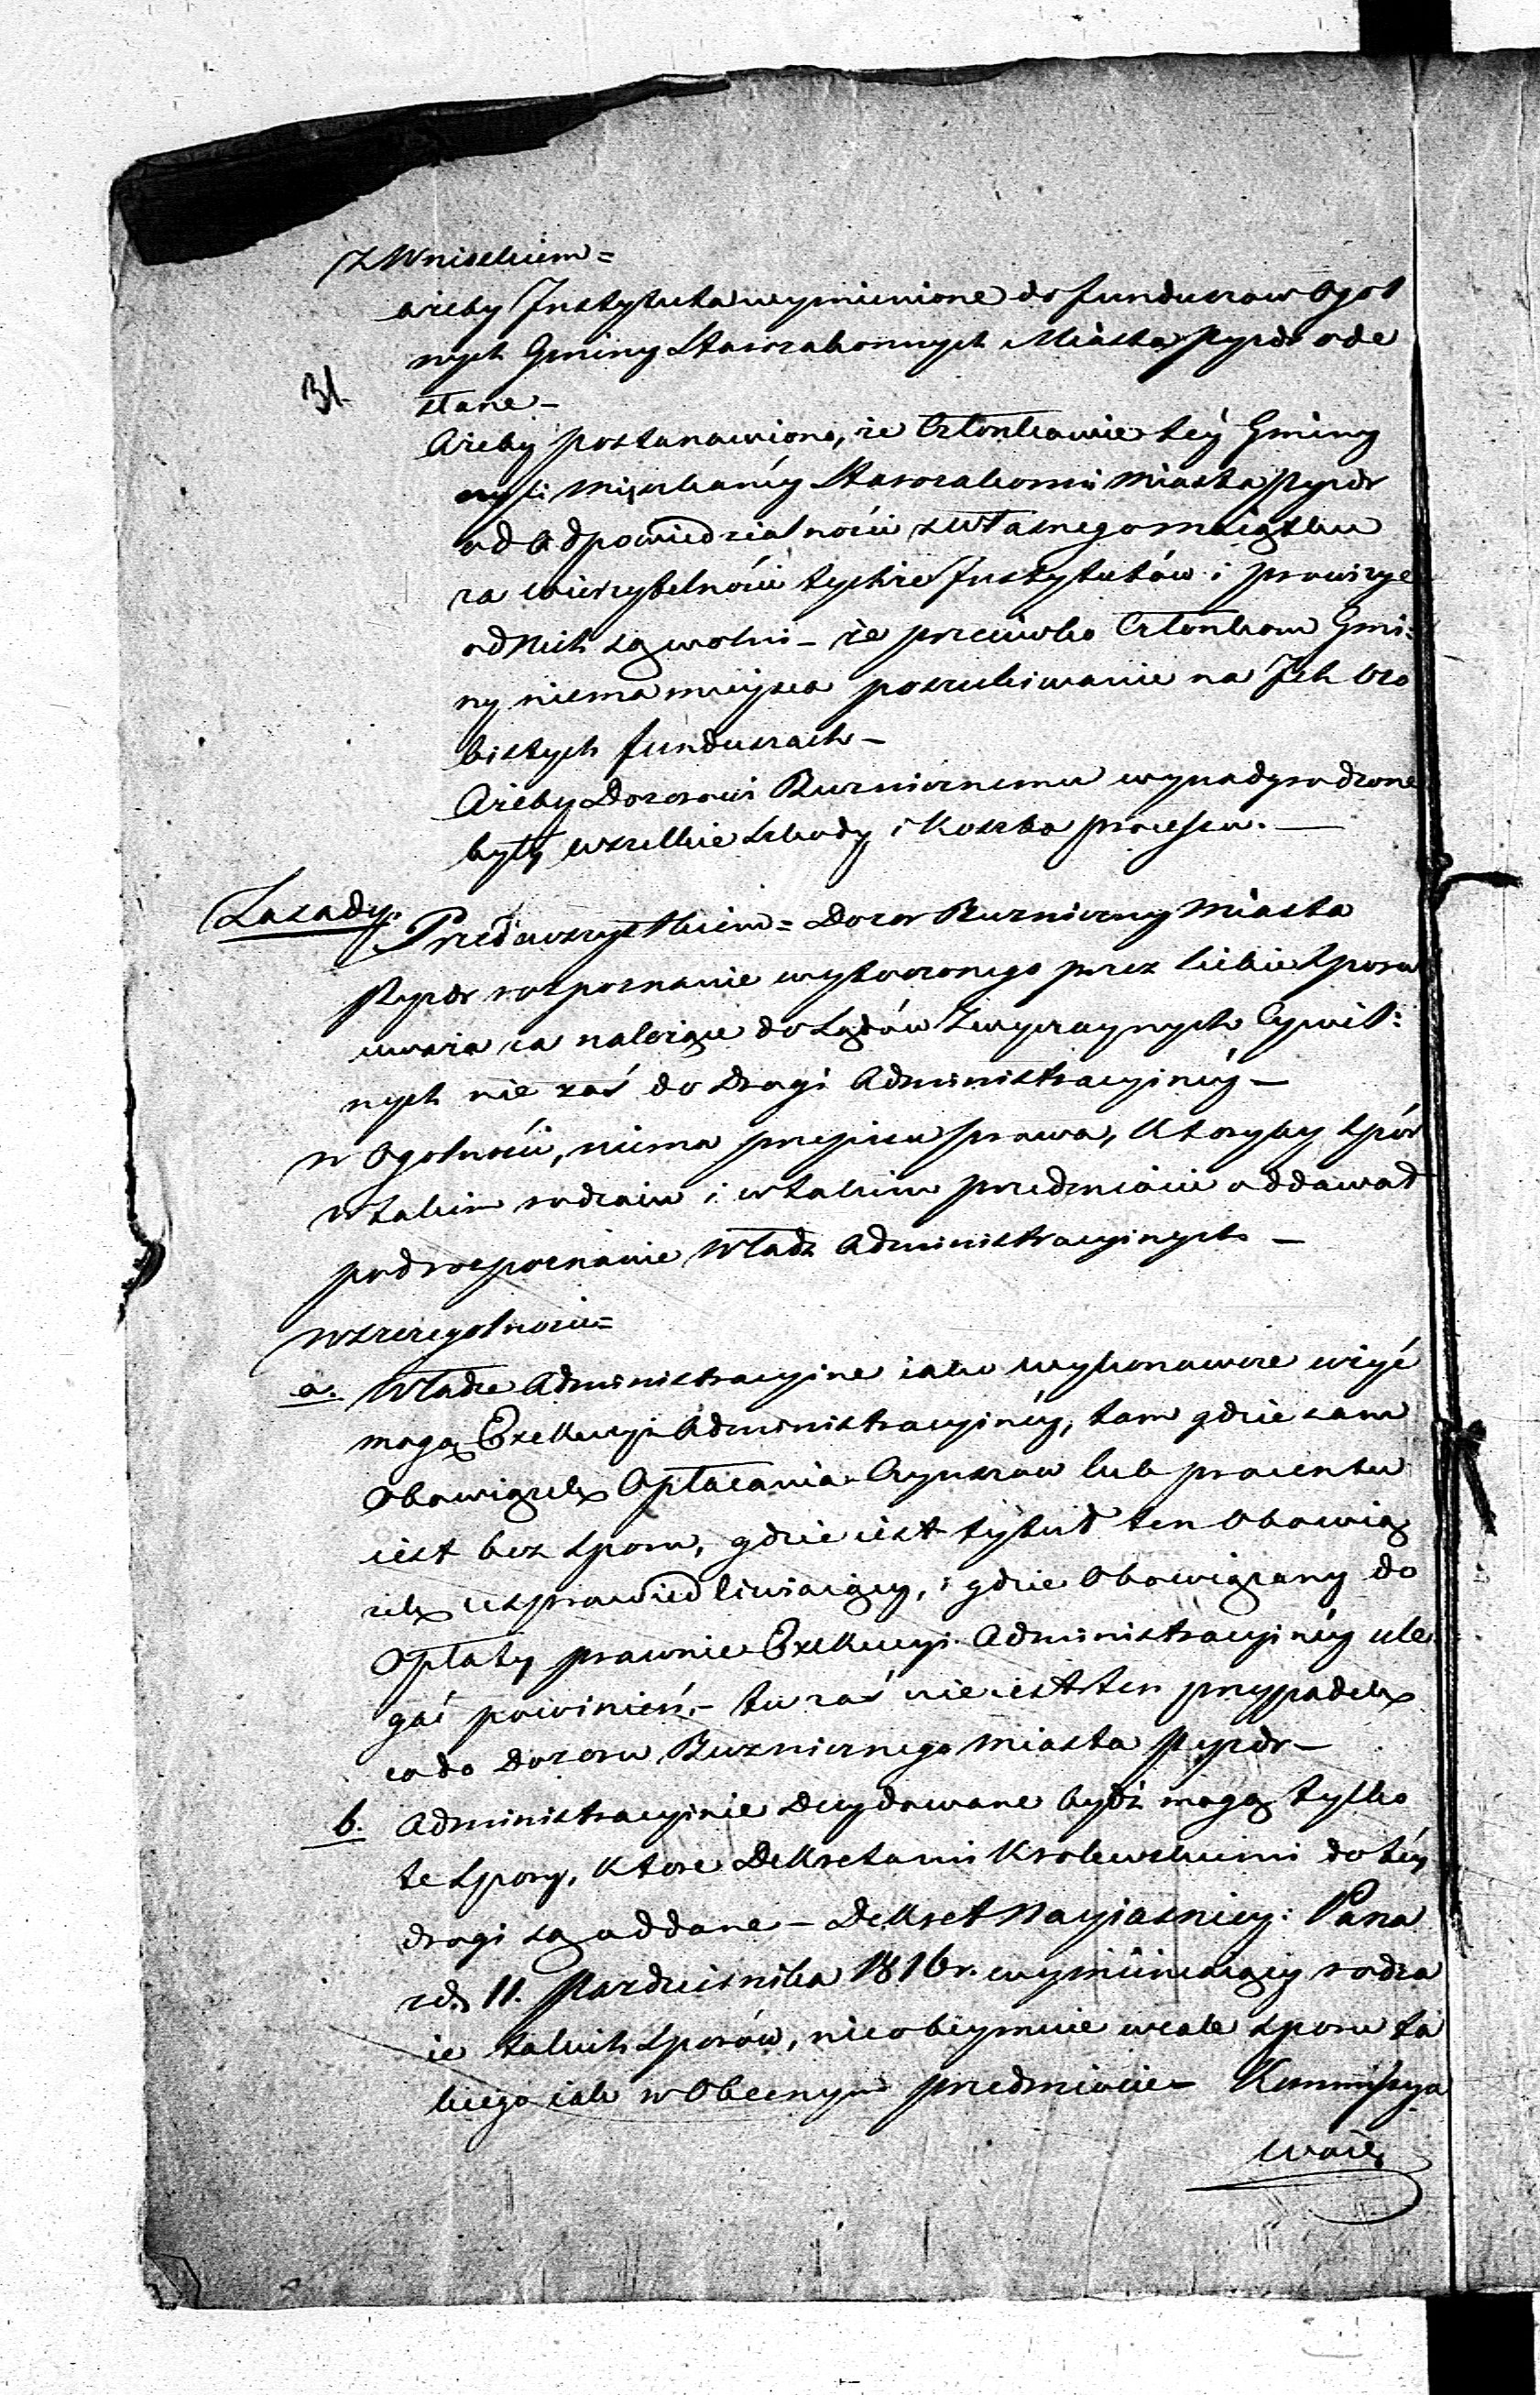 z Wnioskiem =
ażeby Instytuta wymienione do funduszow Ogol
nych Gminy Starozakonnych Miasta Pyzdr ode
31.
słane –
Ażeby postanowiono, że Członkowie téy Gminy
czyli mieszkańcy Starozakonni miasta Pyzdr
od Odpowiedzialności z własnego maiątku
za wierzytelności tychże Instytutów i prowizye
od Nich są wolni – że przeciwko Członkom Gmi:
ny niema mieysca poszukiwanie na Jch Oso
bistych funduszach –
Ażeby Dozorowi Buznicznemu wynadgrodzone
były wszelkie szkody i koszta processu. —
Zasady.
Przedewszystkiem = Dozor Buzniczny Miasta
Pyzdr rozpoznanie wytoczonego przez siebie Sporu
uważa za należące do Sądów Zwyczaynych Cywil:
nych nie zaś do drogi Administracyinéy –
w Ogolności, niema przepisu prawa, któryby spór
w takim rodzaiu i w takim przedmiocie oddawał
pod rozpoznanie Władz Administracyinych –
w szczegolności =
a. Władze Administracyine iako wykonawcze użyć
mogą Exekucyi Administracyinéy, tam gdzie sam
Obowiązek Opłacania Czynszow lub procentu
iest bez sporu, gdzie iest tytuł ten Obowią
zek usprawiedliwiaiący, i gdzie Obowiązany do
Opłaty prawnie Exekucyi Administracyinéy ule
gać powinień. – tu zaś nie iest ten przypadek
co do Dozoru Buznicznego Miasta Pyzdr –
b. Administracyinie decydowane bydź mogą tylko
te Spory, które Dekretami Krolewskiemi do téy
drogi są oddane – Dekret Nayiaśniey: Pana
z d. 11. Pazdziernika 1816 r. wymieniaiący rodza
ie takich Sporów, nieobeymuie wcale sporu ta
kiego iak w Obecnym przedmiocie – Kommissya
Woie: